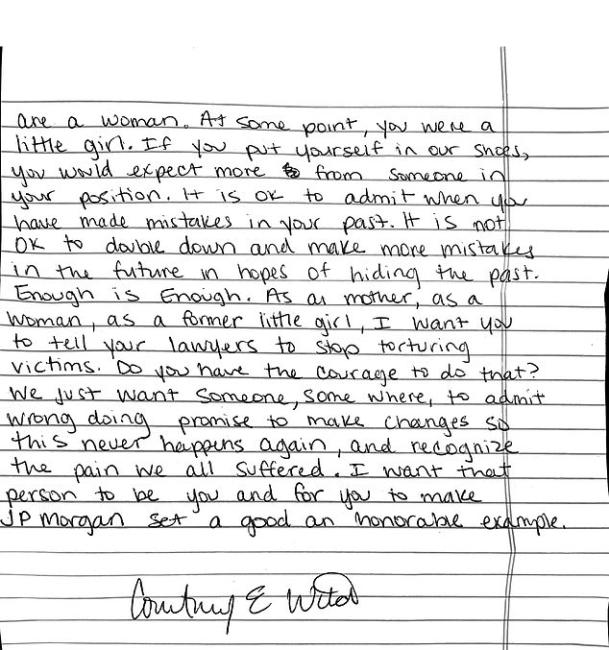 are a woman. At some point, you were a
little girl. If you put yourself in our shoes,
you would expect more from someone in
your position. It is OK to admit when you
have made mistakes in your past. It is not
OK to double down and make more mistakes
in the future in hopes of hiding the past.
Enough is Enough. As a mother, as a
woman, as a former little girl, I want you
to tell your lawyers to stop torturing
victims. Do you have the courage to do that?
We just want someone, some where, to admit
wrong doing promise to make changes so
this never happens again, and recognize
the pain we all suffered. I want that
person to be you and for you to make
JP Morgan set a good an honorable example.
Courtney E Wild